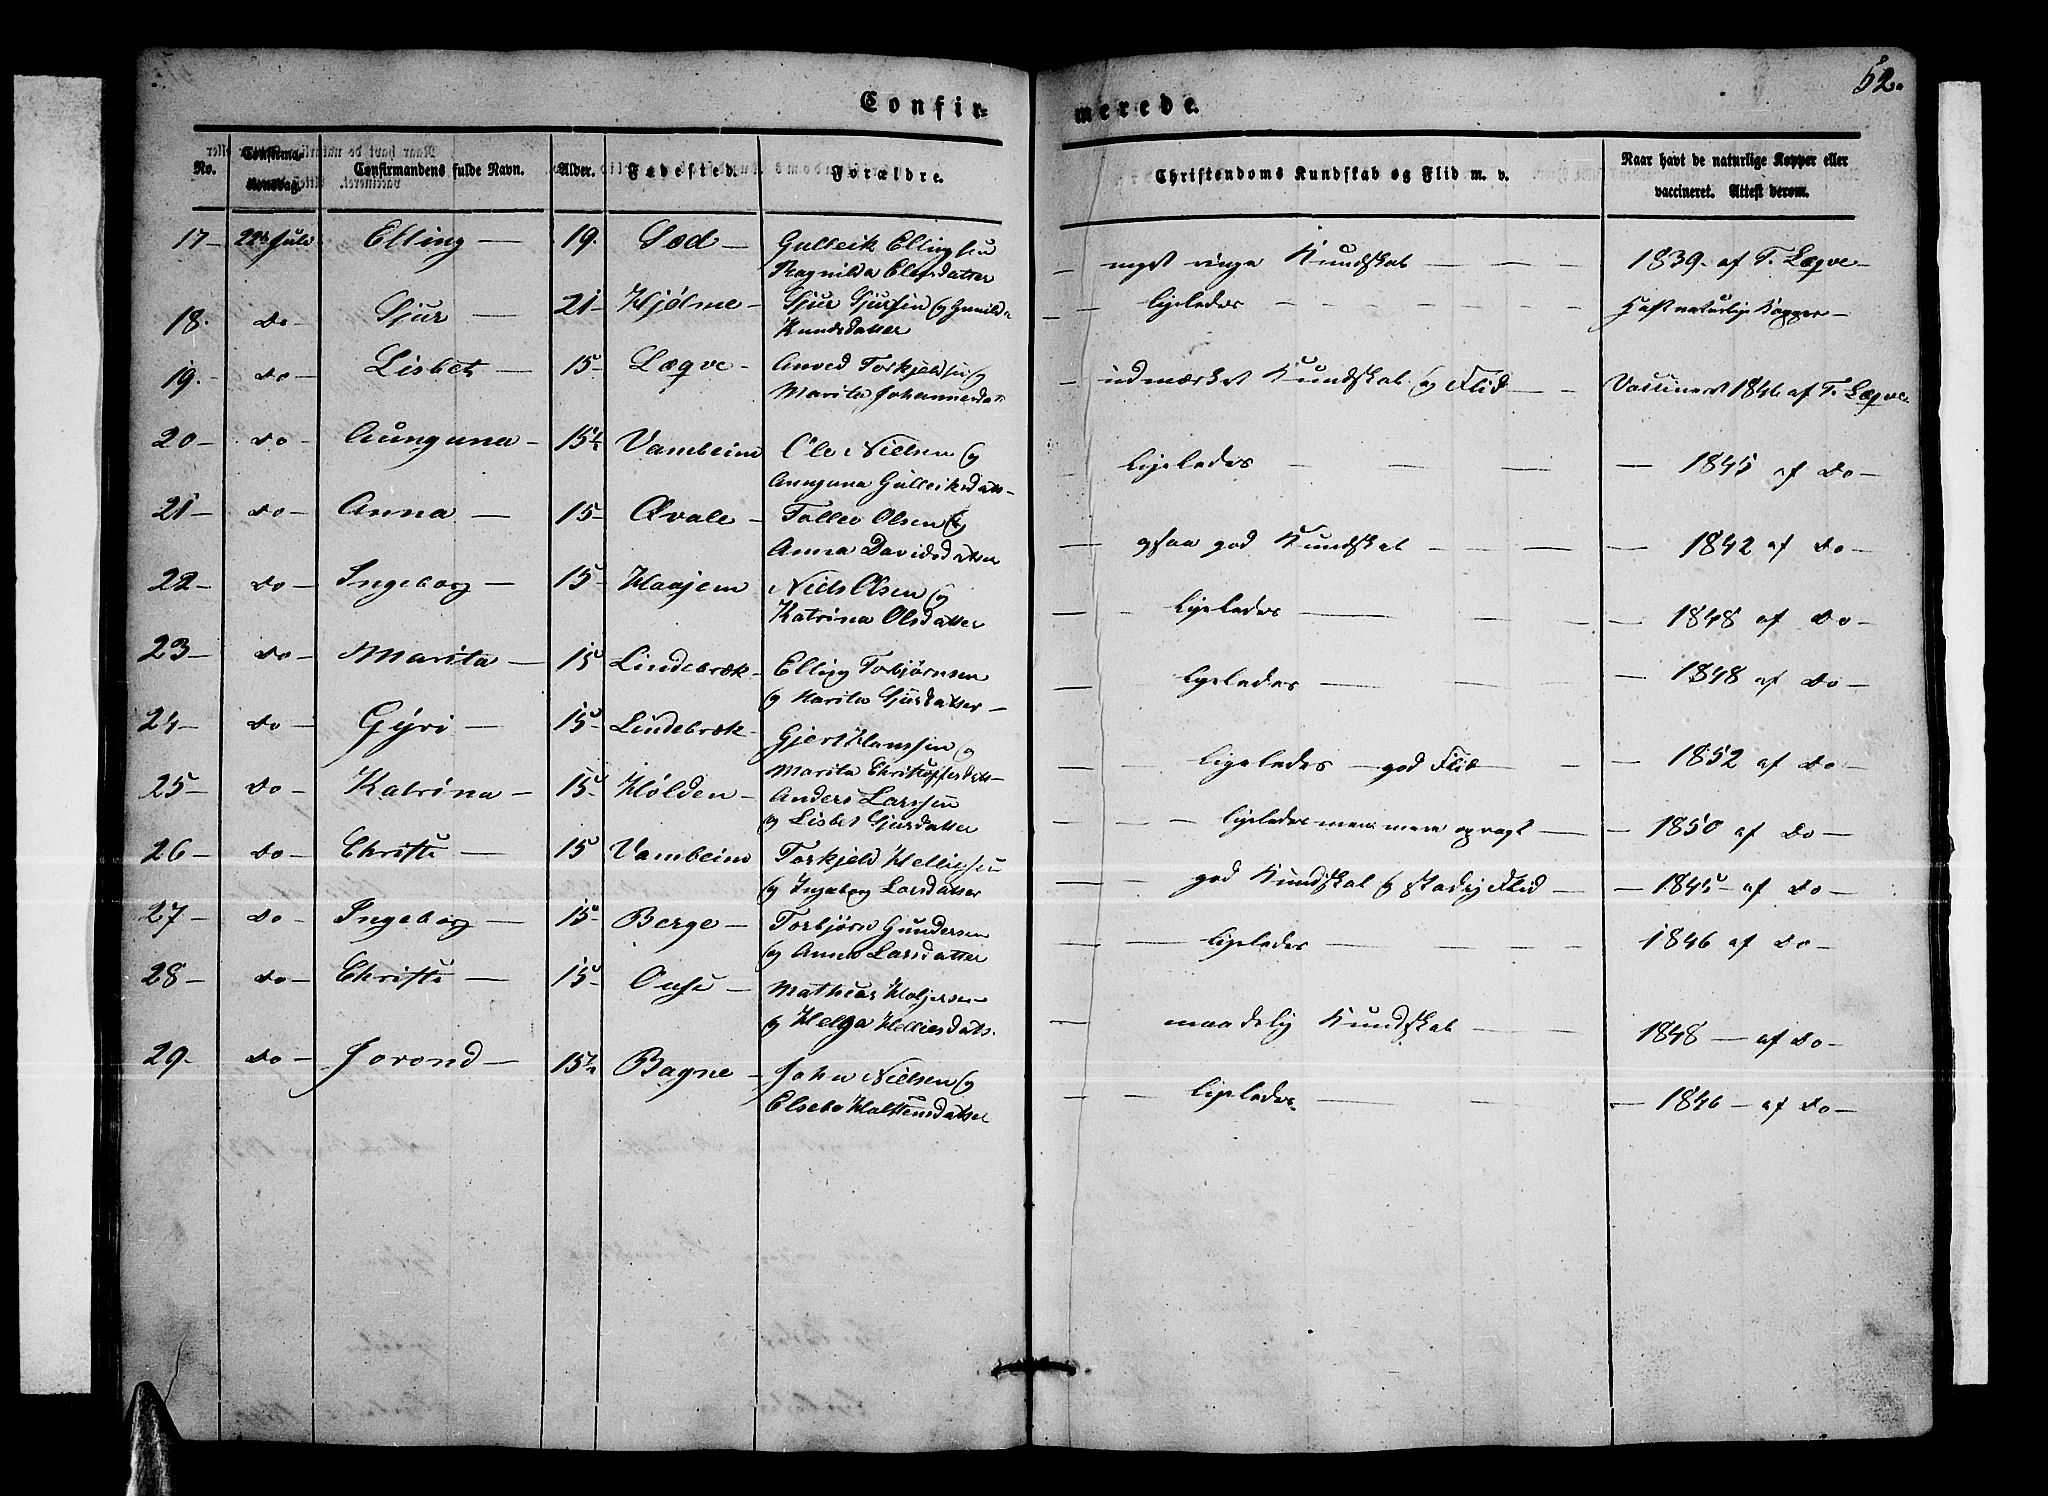 52.
Confir= merede.
No. Confirma-tionsdag. Confirmandens fulde Navn. Alder. Fødested. Forældre. Christendoms Kundskab og Flid m. v. Naar havt de naturlige Kopper eller vaccineret. Attest derom.
17 — 22de Juli Elling — 19. Sæd — Gulleik Ellingsen
Ragnilda Elefsdatter — meget ringe Kundskab — — 1839 af T. Lægve —
18. Do — Sjur — 21 — Hjølme — Sjur Sjursen og Gunild
Knudsdatter — ligeledes — — Haft naturlige Kopper —
19. Do — Lisbet — 15 — Lægve — Amved Torkjeldsen og
Marita Johannesdat. — udmærket Kundskab og Flid — Vaccineret 1846 af T. Lægve
20 — Do — Aunguna — 15½ Vambeim Ole Nielsen og
Aunguna Gulleiksdatt — — ligeledes — — — 1845 af Do —
21 — Do — Anna — 15 — Qvale — Tollev Olsen og
Anna Davidsdatter — gsaa god Kundskab — — — 1842 af Do —
22 — Do — Ingeborg — 15 — Haajem Niels Olsen og
Katrina Olsdatter — — ligeledes — — — 1848 af Do —
23 — Do — Marita — 15 Lindebræk — Elling Torbjørnsen
og Marita Sjursdatter — — ligeledes — — — 1848 af Do —
24 — Do — Gÿri — 15 — Lindebræk — Gjert Hanssen og
Marita Christoffersdat — ligeledes — god Flid — — 1852 af Do —
25 — Do — Katrina — 15 — Hølden — Anders Larssen
og Lisbet Sjursdatter — — — ligeledes men mere opvagt — — 1850 af Do —
26 — Do — Christi — 15 Vambeim Torkjeld Helliesen
og Ingeborg Larsdatter — — god Kundskab og stadig Flid — — 1845 — af Do —
27 — Do — Ingeborg — 15 — Berge — Torbjørn Gundersen
og Anna Larsdatter — — ligeledes — — — 1846 af Do —
28 — Do — Christi — 15 — Ouse — Mathias Holjersen
og Helga Helliesdatt. — maadelig Kundskab — — 1848 — af Do —
29. Do — Jorond — 15½ Bagne — John Nielsen og
Elsebe Halstensdatter — — ligeledes. — 1846 — af Do —